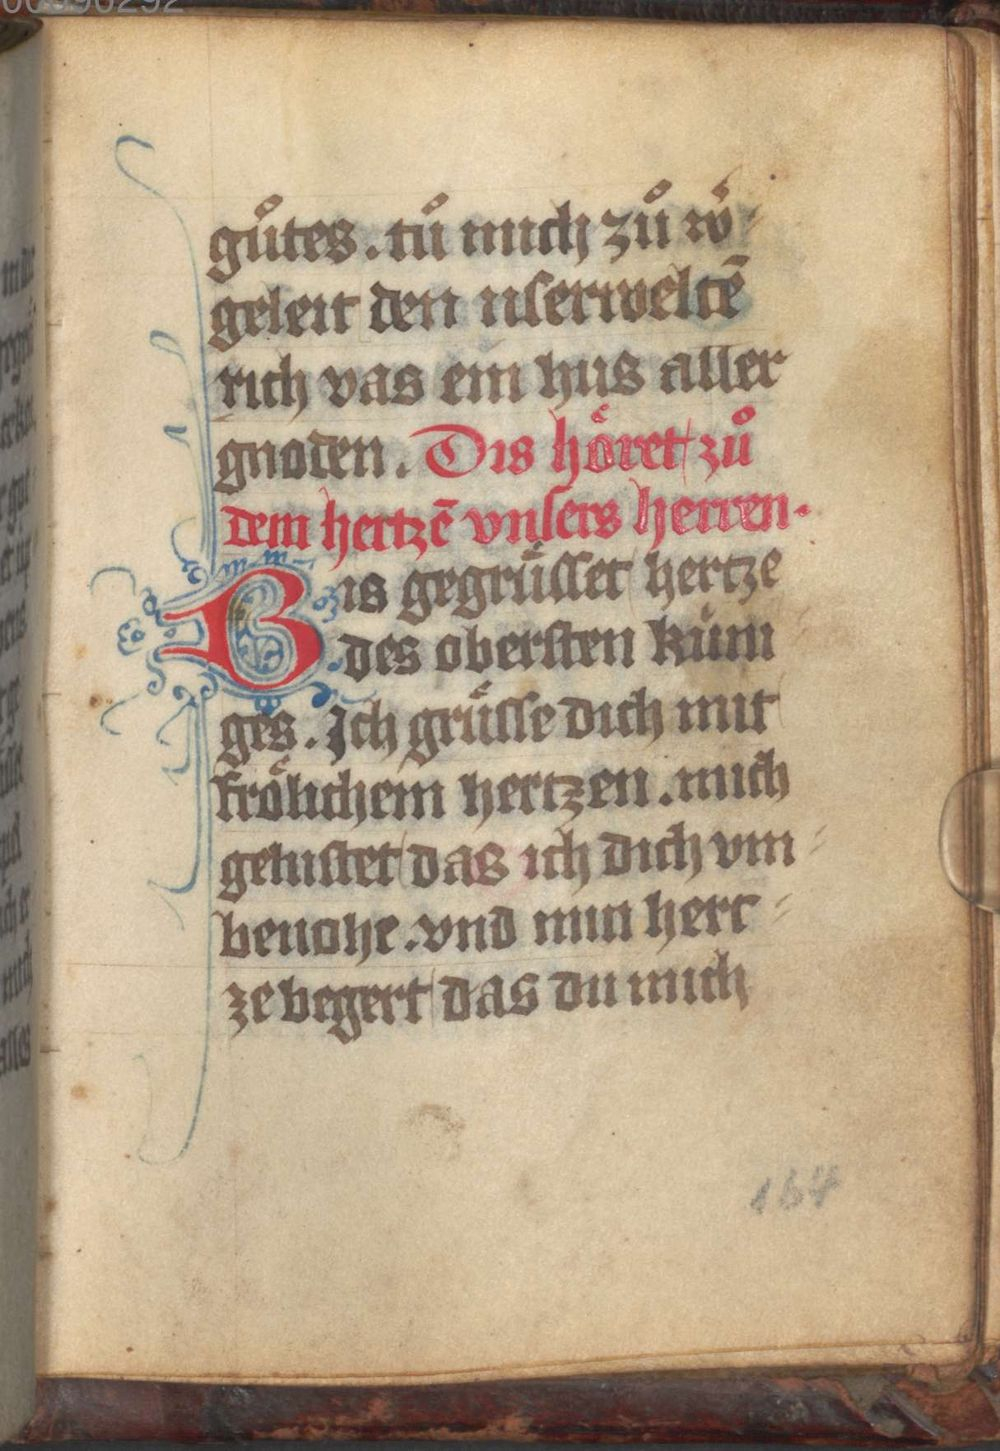 gůtes. tů mich zů
geleit den userweltē
rich vas ein hus aller
gnoden. Dis hoͤret zů
dem hertzē vnsers herren.
Bis gegruͤsset hertze
des obersten kuͤni
ges. Ich gruͤsse dich mit
froͤlichem hertzen. mich
gelustet das ich dich vm
vnd min hert
ze begert das du mich
164